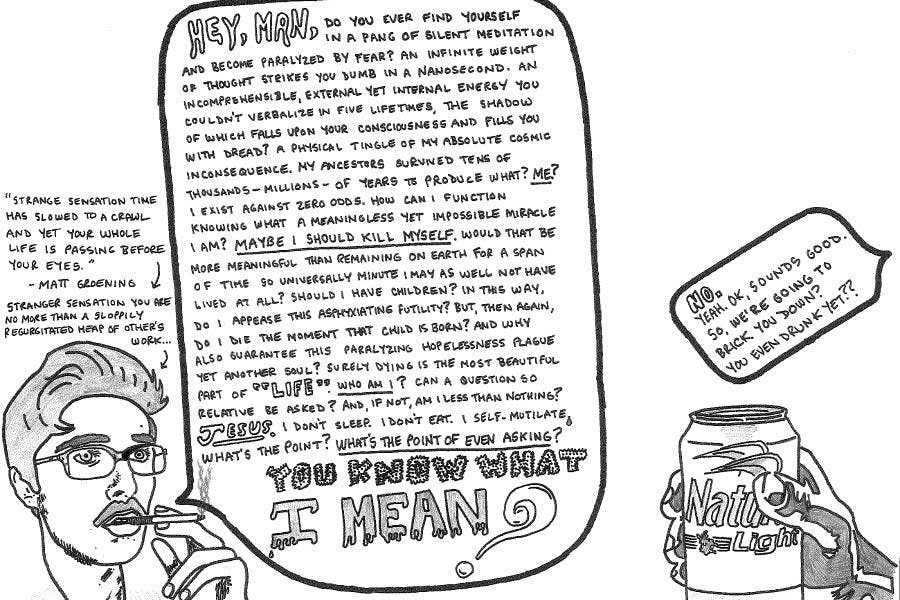 "STRANGE SENSATION TIME
HAS SLOWED TO A CRAWL
AND YET YOUR WHOLE
LIFE IS PASSING BEFORE
YOUR EYES."
- MATT GROENING
STRANGER SENSATION YOU ARE
NO MORE THAN A SLOPPILY
REGURGITATED HEAP OF OTHER'S
WORK...
HEY, MAN, DO YOU EVER FIND YOURSELF
IN A PANG OF SILENT MEDITATION
AND BECOME PARALYZED BY FEAR? AN INFINITE WEIGHT
OF THOUGHT STRIKES YOU DUMB IN A NANOSECOND. AN
INCOMPREHENSIBLE, EXTERNAL YET INTERNAL ENERGY YOU
COULDN'T VERBALIZE IN FIVE LIFETIMES, THE SHADOW
OF WHICH FALLS UPON YOUR CONSCIOUSNESS AND FILLS YOU
WITH DREAD? A PHYSICAL TINGLE OF MY ABSOLUTE COSMIC
INCONSEQUENCE. MY ANCESTORS SURVIVED TENS OF
THOUSANDS - MILLIONS - OF YEARS TO PRODUCE WHAT? ME?
I EXIST AGAINST ZERO ODDS. HOW CAN I FUNCTION
KNOWING WHAT A MEANINGLESS YET IMPOSSIBLE MIRACLE
I AM? MAYBE I SHOULD KILL MYSELF. WOULD THAT BE
MORE MEANINGFUL THAN REMAINING ON EARTH FOR A SPAN
OF TIME SO UNIVERSALLY MINUTE I MAY AS WELL NOT HAVE
LIVED AT ALL? SHOULD I HAVE CHILDREN? IN THIS WAY,
DO I APPEASE THIS ASPHYXIATING FUTILITY? BUT, THEN AGAIN,
DO I DIE THE MOMENT THAT CHILD IS BORN? AND WHY
ALSO GUARANTEE THIS PARALYZING HOPELESSNESS PLAGUE
YET ANOTHER SOUL? SURELY DYING IS THE MOST BEAUTIFUL
PART OF "LIFE". WHO AM I? CAN A QUESTION SO
RELATIVE BE ASKED? AND, IF NOT, AM I LESS THAN NOTHING?
JESUS. I DON'T SLEEP. I DON'T EAT. I SELF-MUTILATE.
WHAT'S THE POINT? WHAT'S THE POINT OF EVEN ASKING?
YOU KNOW WHAT
I MEAN?
NO.
YEAH. OK, SOUNDS GOOD.
SO, WE'RE GOING TO
BRICK YOU DOWN?
YOU EVEN DRUNK YET??
Natur
Light